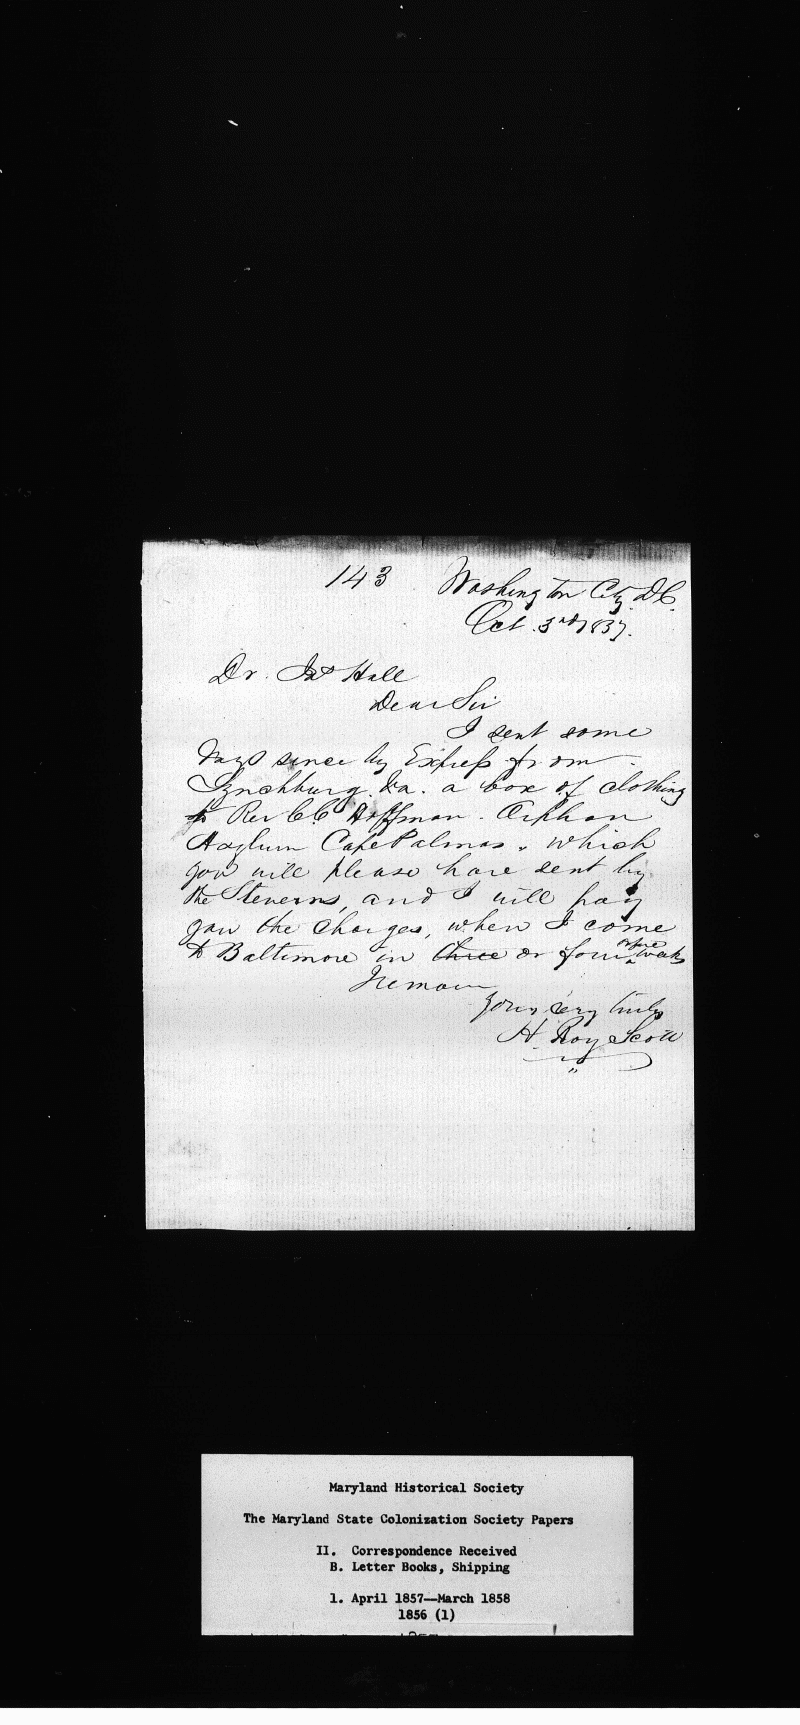 143 Washington City D.C.
Oct. 3rd 1857.
Dr. Jas Hall
Dear Sir
I sent some
days since by Express from
Lynchburg, Va. a box of clothing
to Rev C.C. Hoffman. Orphan
Asylum Cape Palmas, which
you will please have sent by
the Stevens, and I will pay
you the charges, when I come
to Baltimore in three or four weeks
I remain
Yours very truly
H. Roy Scott
Maryland Historical Society
The Maryland State Colonization Society Papers
II. Correspondence Received
B. Letter Books, Shipping
1. April 1857—March 1858
1856 (1)